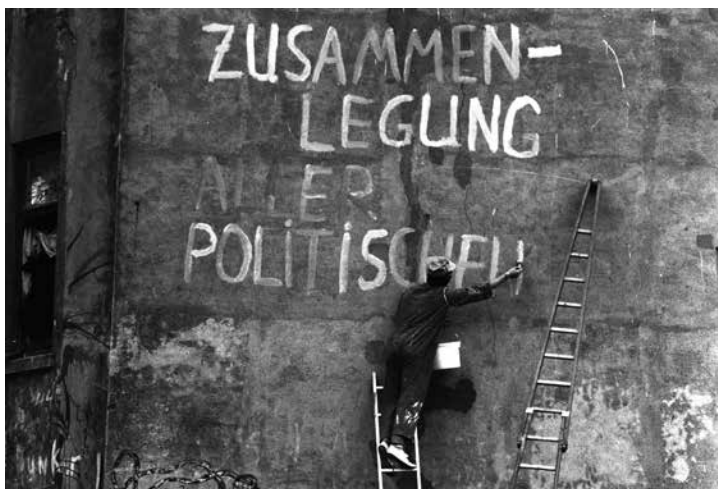 ZUSAMMEN-
LEGUNG
ALLER
POLITISCHEN